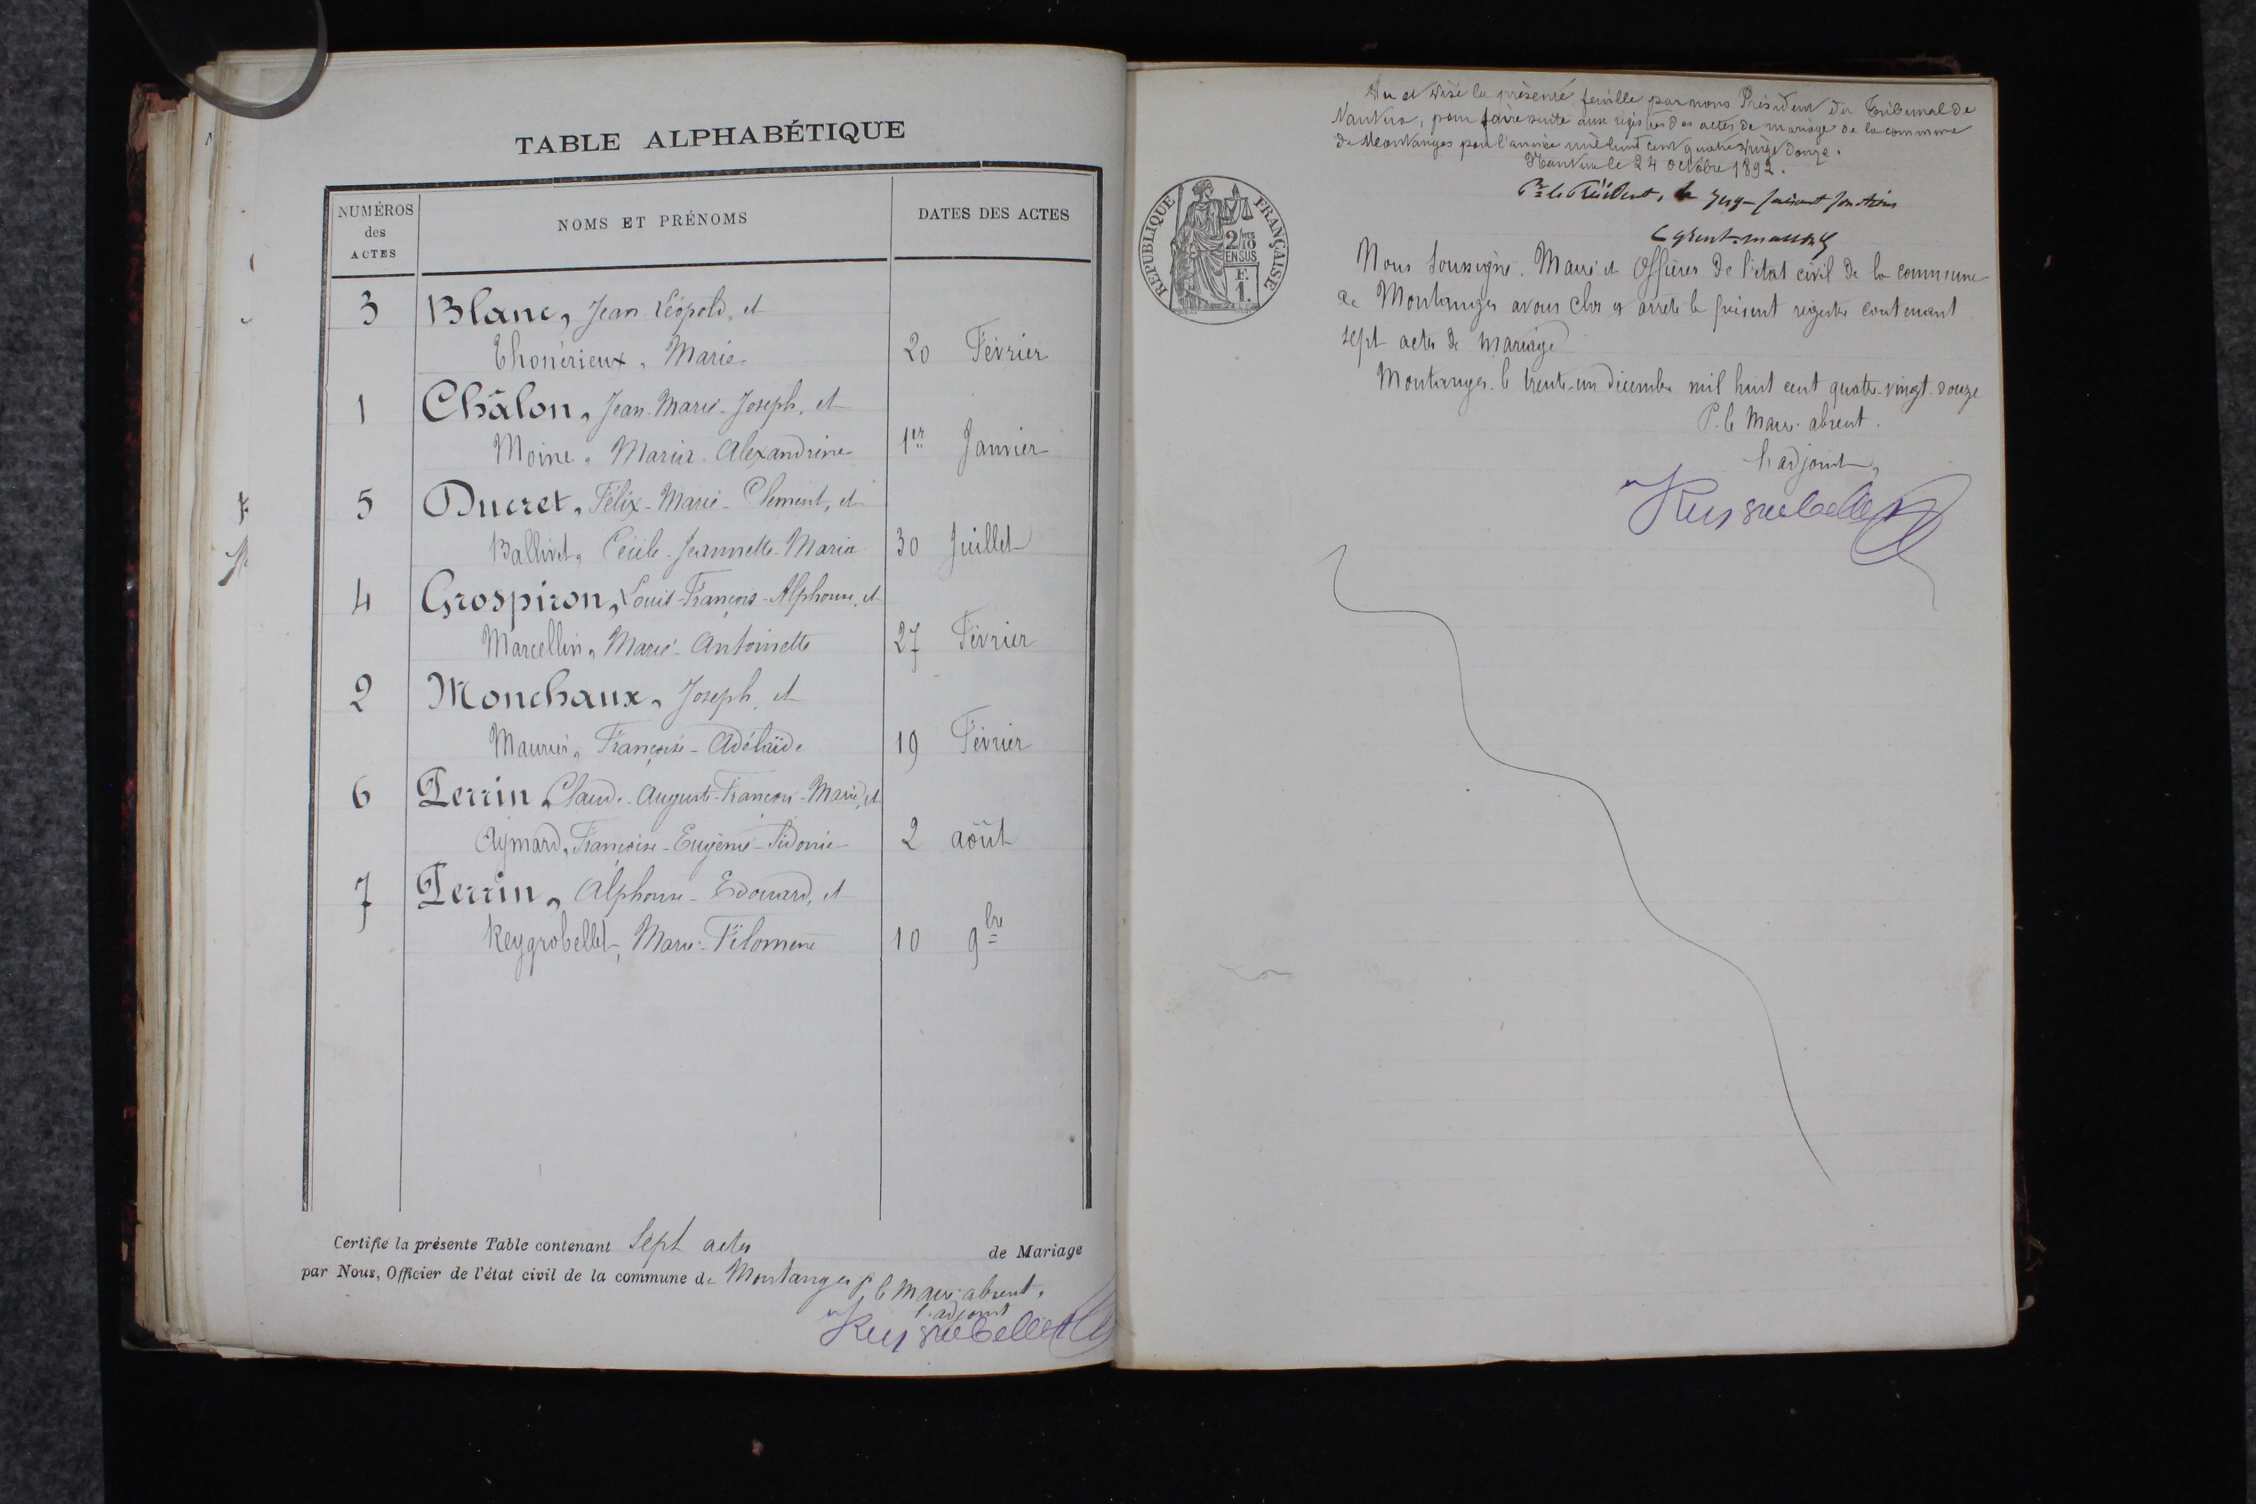 TABLE ALPHABÉTIQUE
NUMÉROS
des
ACTES
NOMS ET PRÉNOMS
DATES DES ACTES
3 Blanc, Jean Léopold, et
Thonérieux, Marie 20 Février
1 Châlon, Jean-Marie-Joseph, et
Moine, Maria Alexandrine 1er Janvier
5 Ducret, Félix-Marie-Clément, et
Ballivet, Cécile-Jeannette-Maria 30 Juillet
4 Grospiron, Louis-François-Alphonse, et
Marcellin, Marie-Antoinette 27 Février
2 Monchaux, Joseph, et
Maurier, Françoise-Adélaïde 19 Février
6 Perrin, Claude-Auguste-François-Marie, et
Aymard, Françoise-Eugénie-Sidonie 2 août
7 Perrin, Alphonse-Edouard, et
Reygrobellet, Marie-Filomène 10 9bre
Certifié la présente Table contenant Sept actes de Mariage
par Nous, Officier de l'état civil de la commune de Montanges P. le Maire absent,
l'adjoint
Vu et visé la présente feuille par nous Président du Tribunal de
Nantua, pour faire suite aux registres des actes de mariage de la commune
de Montanges pour l'année mil huit cent quatre vingt douze.
Nantua le 24 octobre 1892.
Pr le Président, le Juge faisant fonctions
REPUBLIQUE FRANÇAISE
2/10
EN SUS
F.
1.
Nous soussigné, Maire et Officier de l'état civil de la commune
de Montanges avons clos et arrêté le présent registre contenant
sept actes de mariage
Montanges, le trente-un décembre mil huit cent quatre-vingt-douze
P. le Maire absent.
l'adjoint,